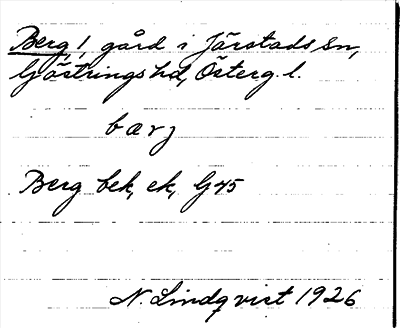 Berg 1, gård i Järstads sn,
Göstrings hd, Österg. l.
bærj
Berg bek, ek, G45
N. Lindqvist 1926